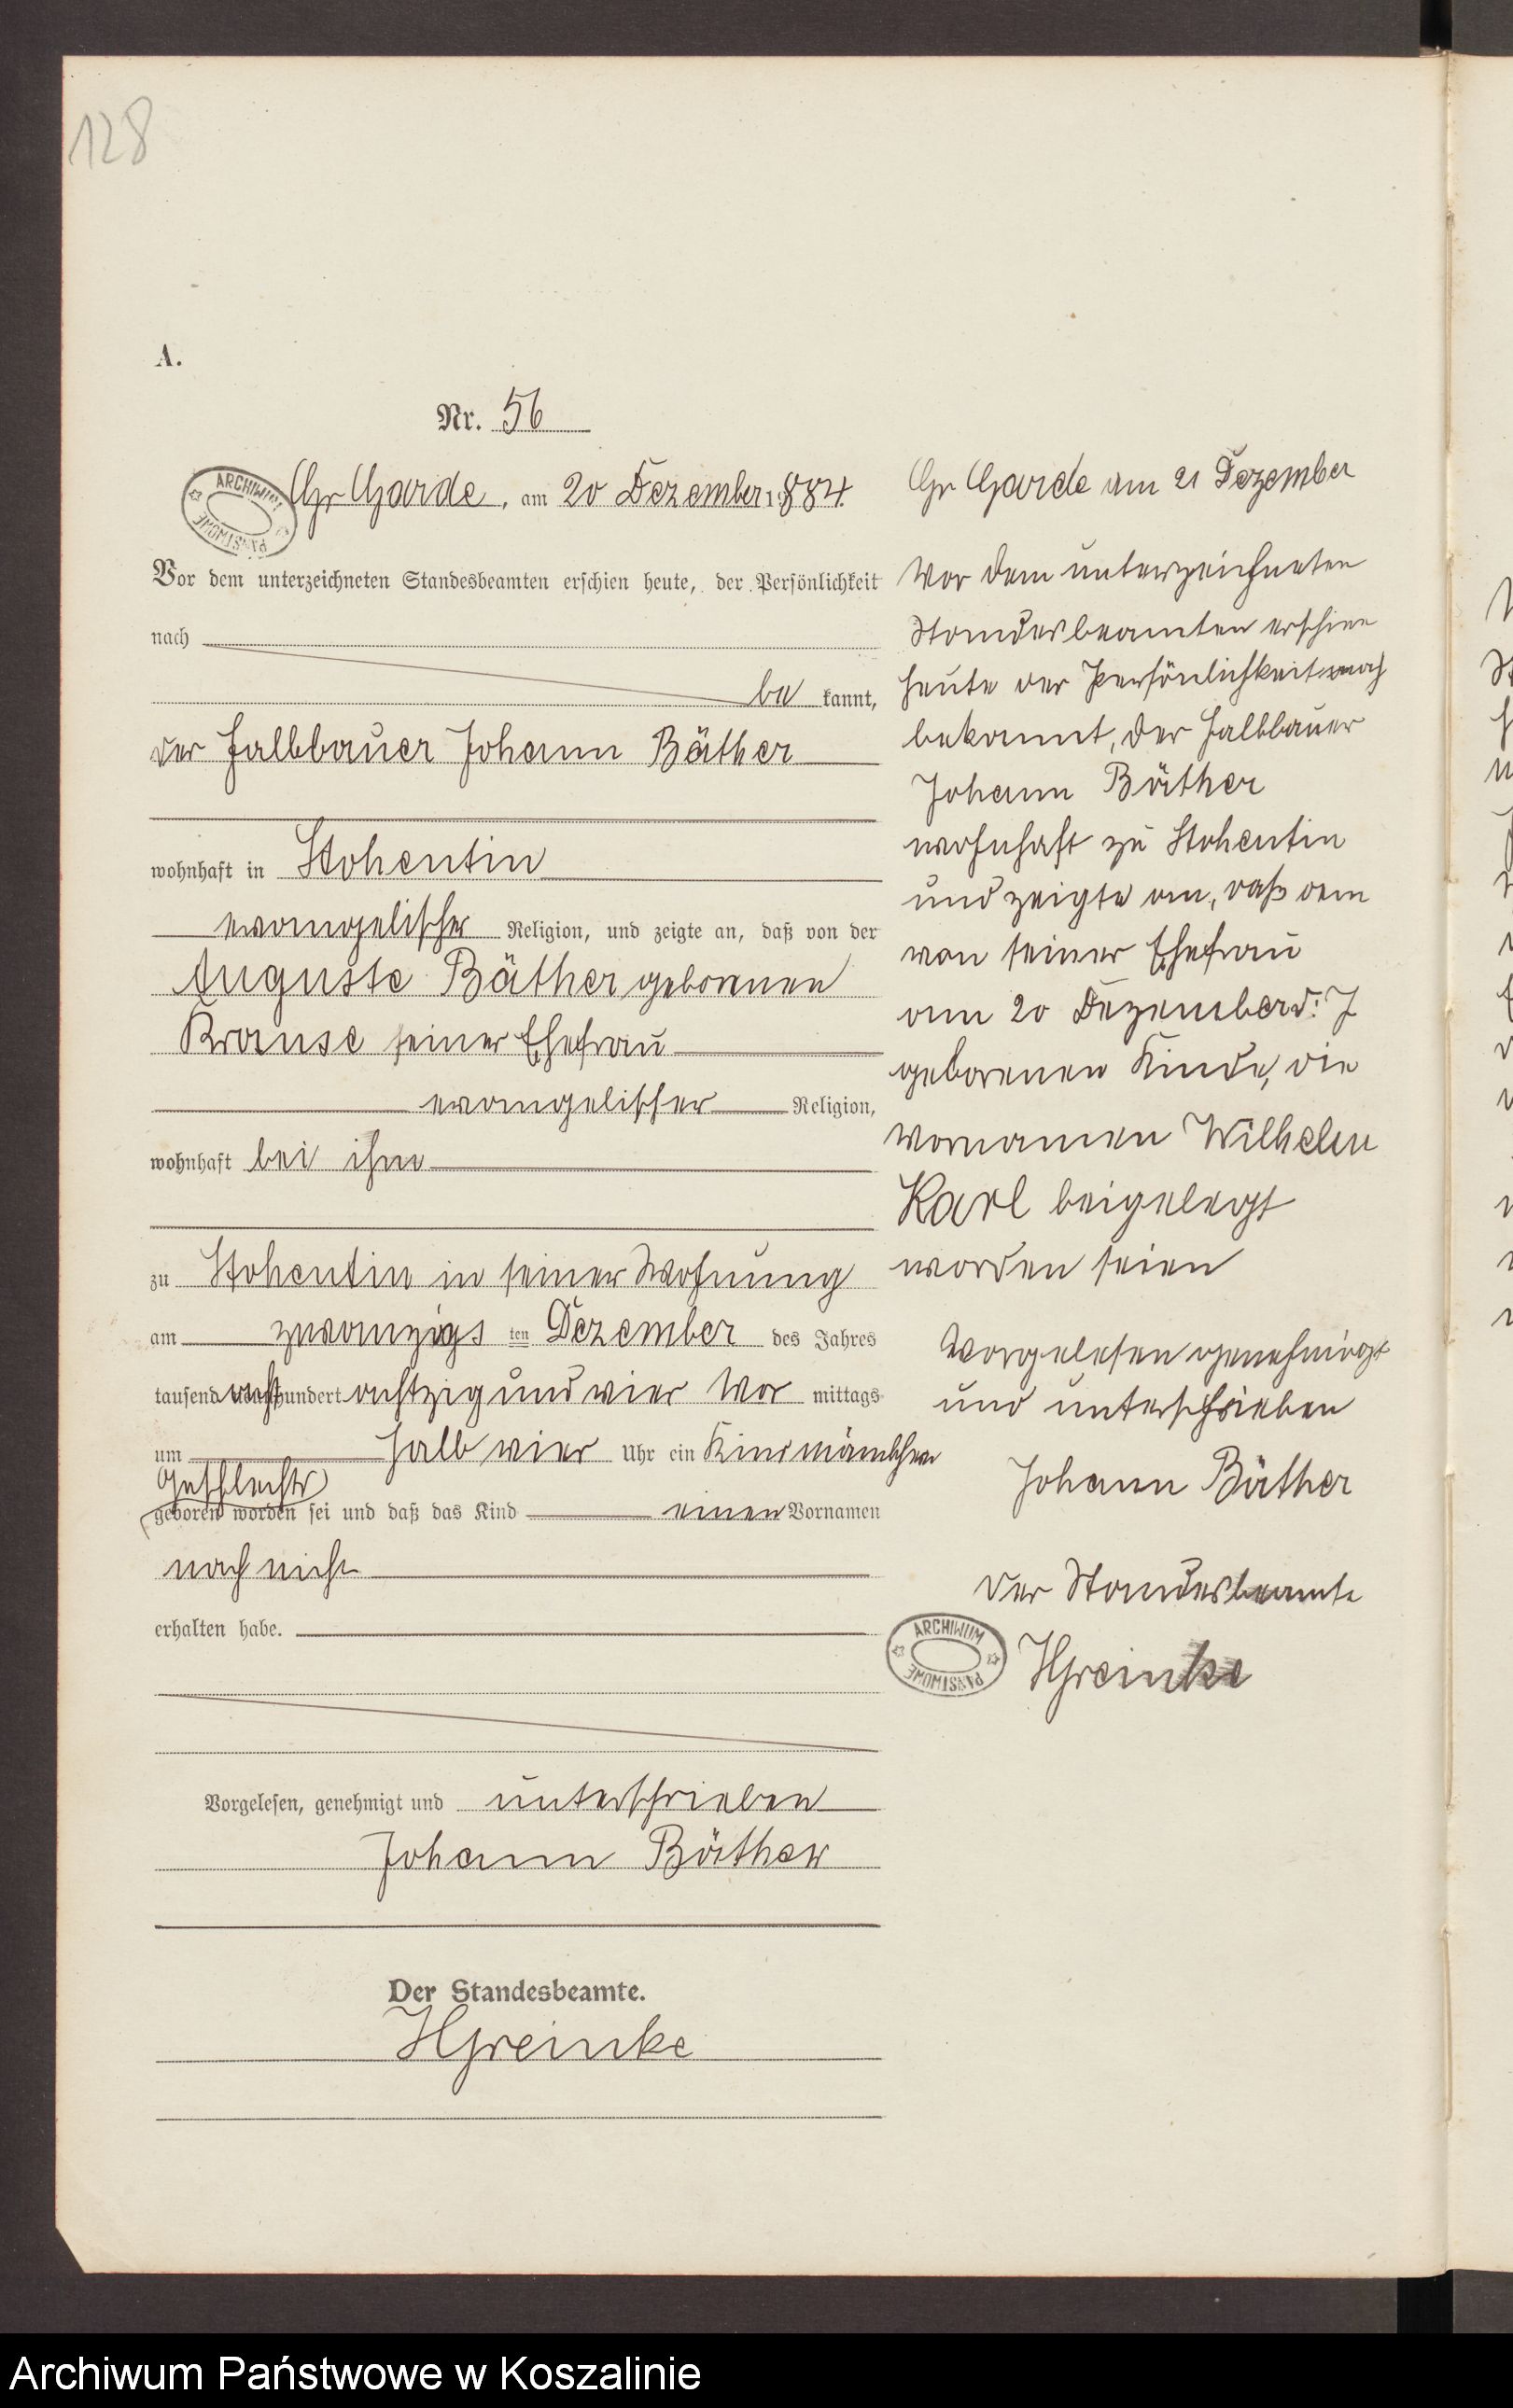 128
A.
Nr. 56
ARCHIWUM PAŃSTWOWE
Gr Garde, am 20 Dezember 1884.
Vor dem unterzeichneten Standesbeamten erschien heute, der Persönlichkeit
nach
be kannt,
der Halbbauer Johann Bäther
wohnhaft in Stohentin
evangelischer Religion, und zeigte an, daß von der
Auguste Bäther geborenen
Krause seiner Ehefrau
evangelischer Religion,
wohnhaft bei ihm
zu Stohentin in seiner Wohnung
am zwanzigs ten Dezember des Jahres
tausend acht hundert achtzig und vier Vor mittags
um halb vier Uhr ein Kind männlichen
Geschlechts
geboren worden sei und daß das Kind einen Vornamen
noch nicht
erhalten habe.
Vorgelesen, genehmigt und unterschrieben
Johann Bäther
Der Standesbeamte.
HGreinke
Gr Garde am 21 Dezember
Vor dem unterzeichneten
Standesbeamten erschien
heute der Persönlichkeit nach
bekannt, der Halbbauer
Johann Bäther
wohnhaft zu Stohentin
und zeigte an, daß dem
von seiner Ehefrau
am 20 Dezember d: J
geborenen Kinde, die
Vornamen Wilhelm
Karl beigelegt
worden seien
Vorgelesen genehmigt
und unterschrieben
Johann Bäther
Der Standesbeamte
ARCHIWUM PAŃSTWOWE
HGreinke
Archiwum Państwowe w Koszalinie